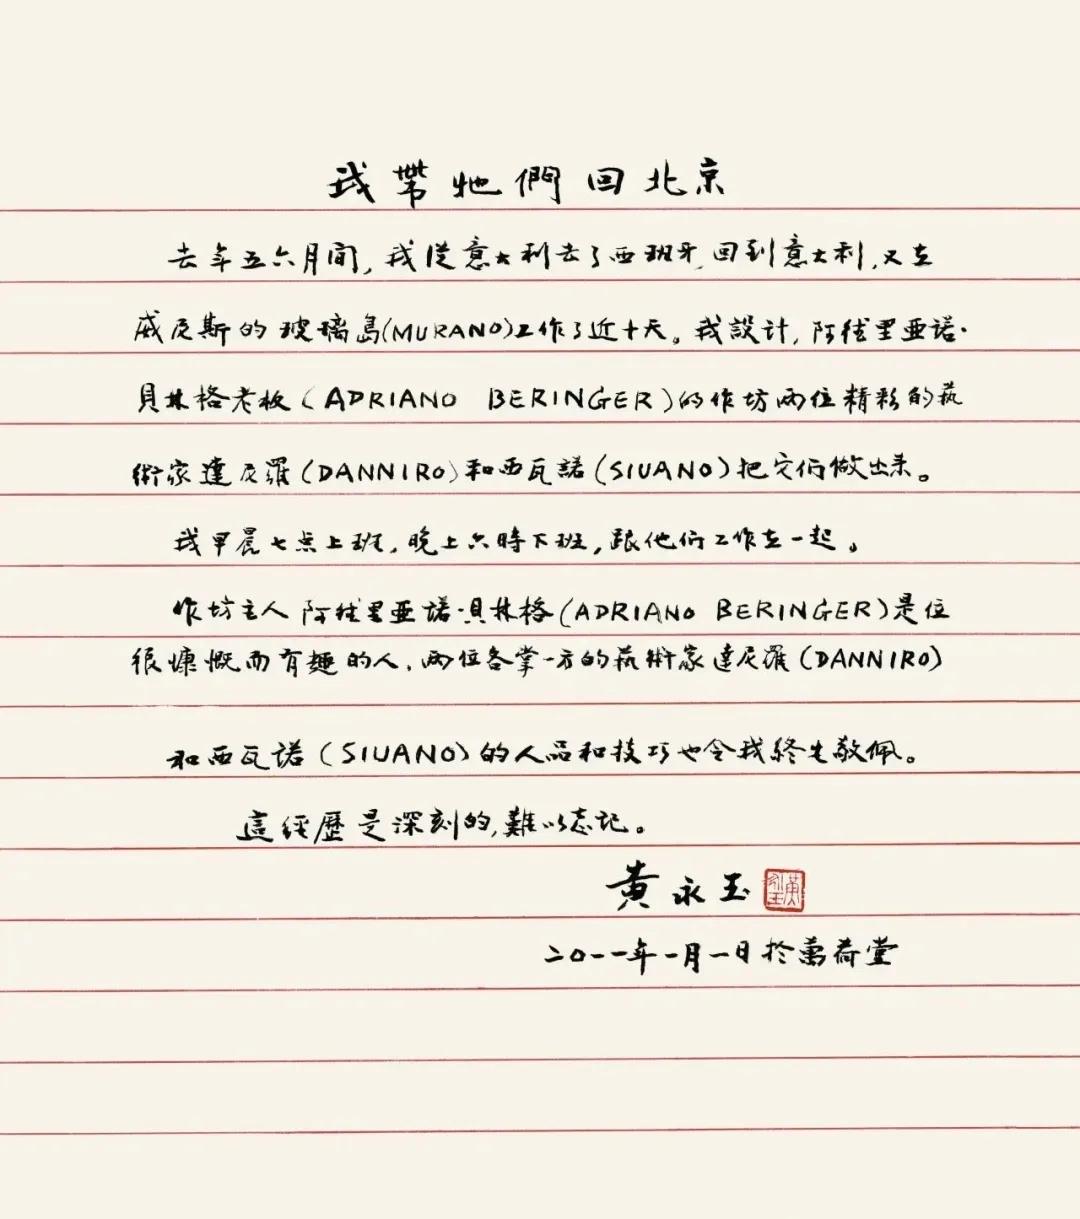 我帶牠們回北京
去年五六月间,我從意大利去了西班牙,回到意大利,又在
威尼斯的玻璃島(MURANO)工作了近十天。我設计,阿德里亚诺·
貝林格老板(ADRIANO BERINGER)的作坊两位精彩的藝
術家達尼羅(DANNIRO)和西瓦諾(SIUANO)把它们做出来。
我早晨七点上班,晚上六時下班,跟他们工作在一起。
作坊主人阿德里亚诺·貝林格(ADRIANO BERINGER)是位
很慷慨而有趣的人,两位各掌一方的藝術家達尼羅(DANNIRO)
和西瓦诺(SIUANO)的人品和技巧也令我終生敬佩。
這經歷是深刻的,難以忘記。
黄永玉
二〇一一年一月一日於萬荷堂